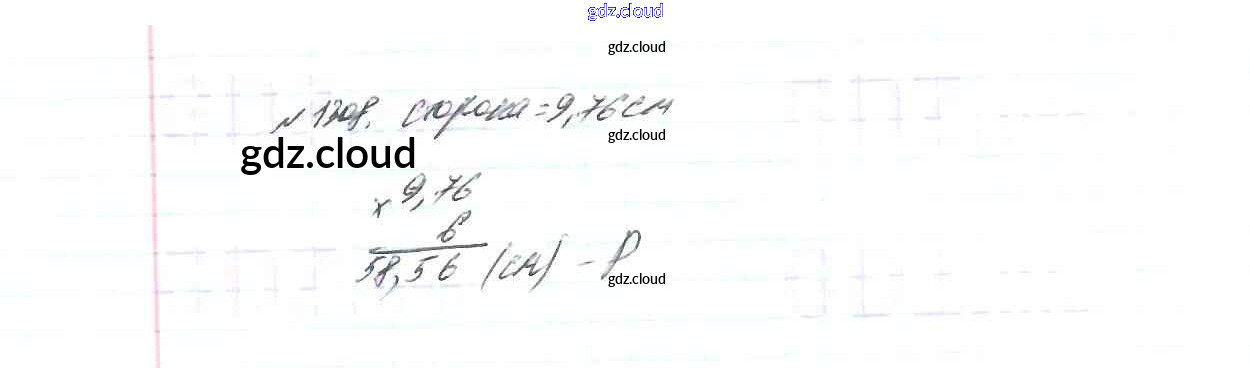 gdz.cloud
gdz.cloud
№1308. сторона = 9,76 см
gdz.cloud
gdz.cloud
× 9,76
6
58,56 (см) – P
gdz.cloud